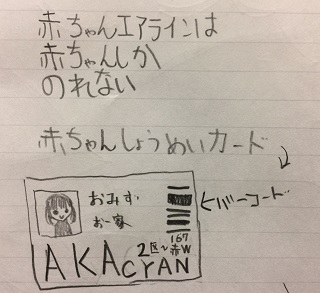 赤ちゃんエアラインは
赤ちゃんしか
のれない
赤ちゃんしょうめいカード
おみず
お一家
バーコード
167
2区〜赤W
AKACYAN